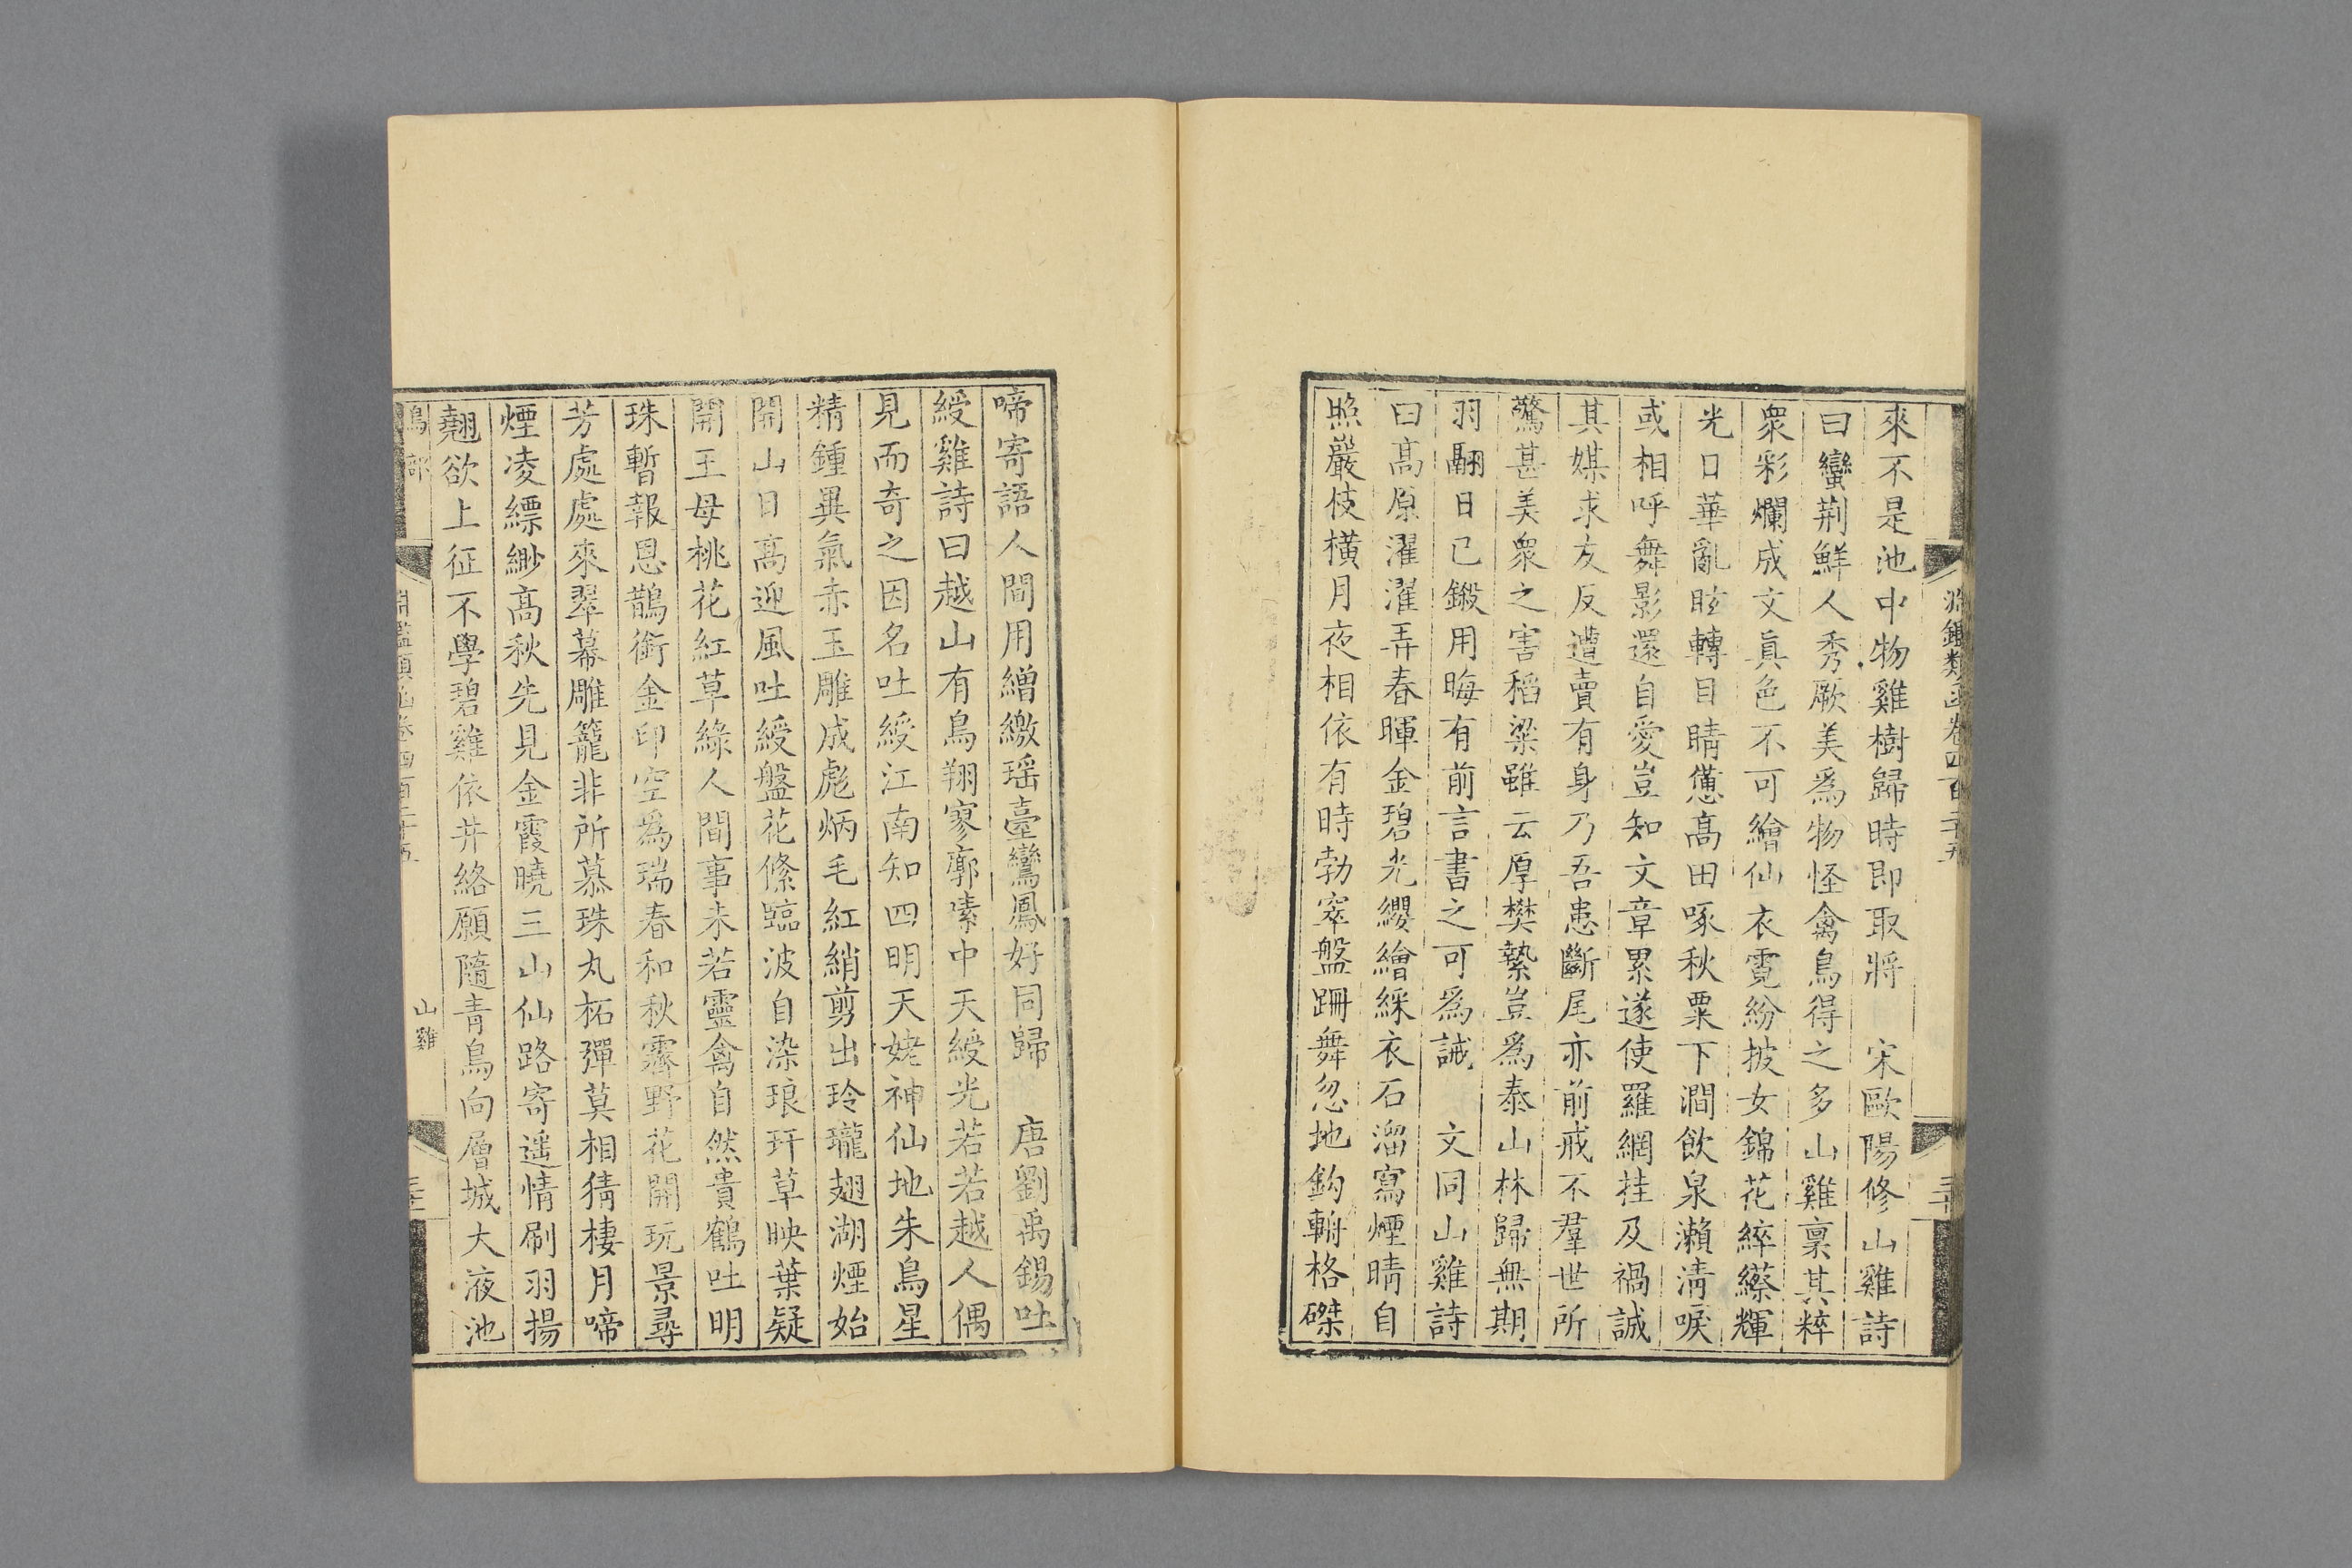 淵鑑類函卷四百二十五
三十
來不是池中物雞樹歸時即取將 宋歐陽修山雞詩
曰蠻荆鮮人秀厥美爲物怪禽鳥得之多山雞稟其粹
衆彩爛成文真色不可繪仙衣霓紛披女錦花綷縩輝
光日華亂眩轉目睛憊高田啄秋粟下澗飲泉瀨清唳
或相呼舞影還自愛豈知文章累遂使羅網挂及禍誠
其媒求友反遭賣有身乃吾患斷尾亦前戒不羣世所
驚甚美衆之害稻粱雖云厚樊縶豈爲泰山林歸無期
羽翮日已鎩用晦有前言書之可爲誡 文同山雞詩
曰高原濯濯弄春暉金碧光纓繪綵衣石溜寫煙晴自
照巖伎橫月夜相依有時勃窣盤跚舞忽地鈎輈格磔
啼寄語人間用繒繳瑶臺鸞鳳好同歸 唐劉禹錫吐
綬雞詩曰越山有鳥翔寥廓嗉中天綬光若若越人偶
見而奇之因名吐綬江南知四明天姥神仙地朱鳥星
精鍾異氣赤玉雕成彪炳毛紅綃剪出玲瓏翅湖煙始
開山日高迎風吐綬盤花絛臨波自染琅玕草映葉疑
開王母桃花紅草綠人間事未若靈禽自然貴鶴吐明
珠暫報恩鵲銜金印空爲瑞春和秋霽野花開玩景尋
芳處處來翠幕雕籠非所慕珠丸柘彈莫相猜棲月啼
煙凌縹緲高秋先見金霞曉三山仙路寄遥情刷羽揚
翹欲上征不學碧雞依井絡願隨青鳥向層城大液池
鳥部
淵鑑類函卷四百二十五
山雞